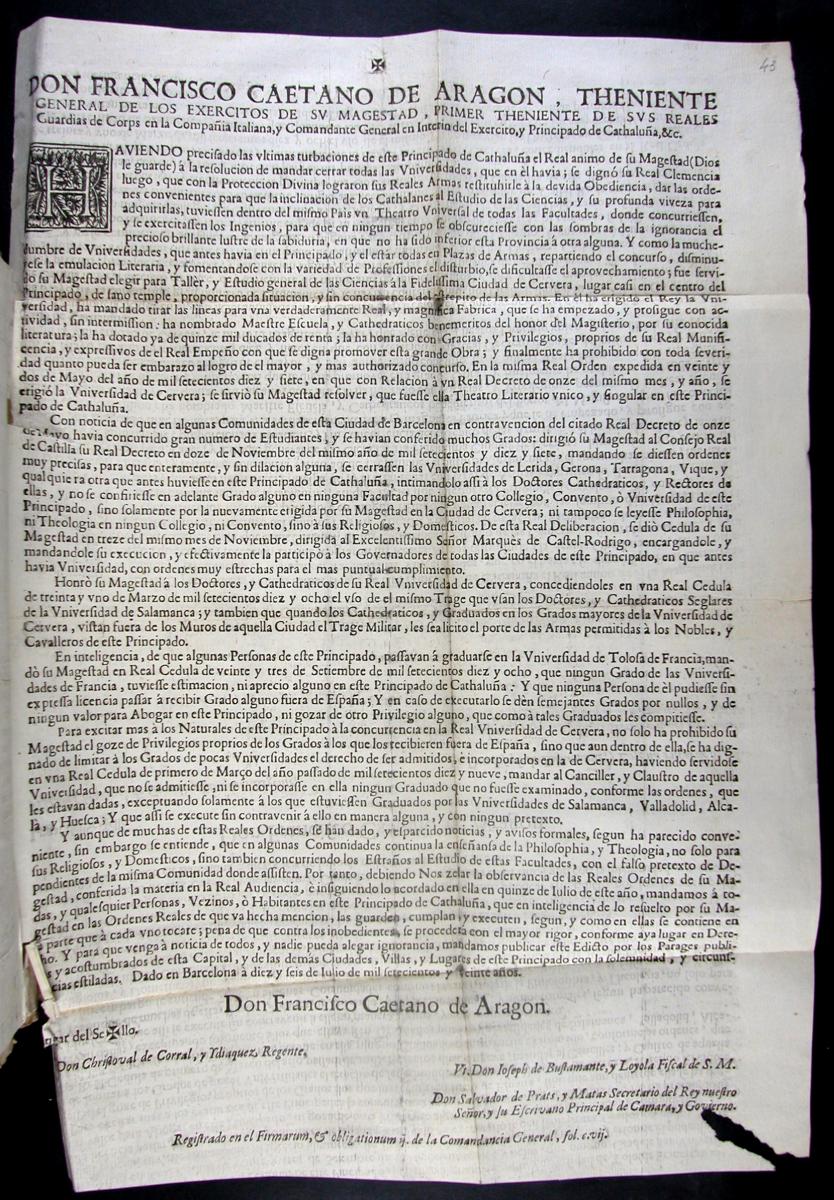 43
✠
DON FRANCISCO CAETANO DE ARAGON, THENIENTE
GENERAL DE LOS EXERCITOS DE SV MAGESTAD, PRIMER THENIENTE DE SVS REALES
Guardias de Corps en la Compañia Italiana, y Comandante General en Interin del Exercito, y Principado de Cathaluña, &c.
HAVIENDO precisado las vltimas turbaciones de este Principado de Cathaluña el Real animo de su Magestad (Dios
le guarde) à la resolucion de mandar cerrar todas las Vniversidades, que en èl havia; se dignó su Real Clemencia
luego, que con la Proteccion Divina lograron sus Reales Armas restituhirle à la devida Obediencia, dar las orde-
nes convenientes para que la inclinacion de los Cathalanes al Estudio de las Ciencias, y su profunda viveza para
adquirirlas, tuviessen dentro del mismo Pais vn Theatro Vniversal de todas las Facultades, donde concurriessen,
y se exercitassen los Ingenios, para que en ningun tiempo se obscureciesse con las sombras de la ignorancia el
precioso brillante lustre de la sabiduria, en que no ha sido inferior esta Provincia à otra alguna. Y como la muche-
dumbre de Vniversidades, que antes havia en el Principado, y el estàr todas en Plazas de Armas, repartiendo el concurso, disminu-
yesse la emulacion Literaria, y fomentandose con la variedad de Professiones el disturbio, se dificultasse el aprovechamiento; fue servi-
do su Magestad elegir para Taller, y Estudio general de las Ciencias à la Fidelissima Ciudad de Cervera, lugar casi en el centro del
Principado, de sano temple, proporcionada situacion, y sin concurrencia del estrepito de las Armas. En èl ha erigido el Rey la Vni-
versidad, ha mandado tirar las lineas para vna verdaderamente Real, y magnifica Fabrica, que se ha empezado, y prosigue con ac-
tividad, sin intermission: ha nombrado Maestre Escuela, y Cathedraticos benemeritos del honor del Magisterio, por su conocida
literatura; la ha dotado ya de quinze mil ducados de renta; la ha honrado con Gracias, y Privilegios, proprios de su Real Munifi-
cencia, y expressivos de el Real Empeño con que se digna promover esta grande Obra; y finalmente ha prohibido con toda severi-
dad quanto pueda ser embarazo al logro de el mayor, y mas authorizado concurso. En la misma Real Orden expedida en veinte y
dos de Mayo del año de mil setecientos diez y siete, en que con Relacion à vn Real Decreto de onze del mismo mes, y año, se
erigió la Vniversidad de Cervera; se sirviò su Magestad resolver, que fuesse ella Theatro Literario vnico, y singular en este Princi-
pado de Cathaluña.
Con noticia de que en algunas Comunidades de esta Ciudad de Barcelona en contravencion del citado Real Decreto de onze
de Mayo havia concurrido gran numero de Estudiantes, y se havian conferido muchos Grados: dirigiò su Magestad al Consejo Real
de Castilla su Real Decreto en doze de Noviembre del mismo año de mil setecientos y diez y siete, mandando se diessen ordenes
muy precisas, para que enteramente, y sin dilacion alguna, se cerrassen las Vniversidades de Lerida, Gerona, Tarragona, Vique, y
qualquiera otra que antes huviesse en este Principado de Cathaluña, intimandolo assi à los Doctores Cathedraticos, y Rectores de
ellas, y no se confiriesse en adelante Grado alguno en ninguna Facultad por ningun otro Collegio, Convento, ò Vniversidad de este
Principado, sino solamente por la nuevamente erigida por su Magestad en la Ciudad de Cervera; ni tampoco se leyesse Philosophia,
ni Theologia en ningun Collegio, ni Convento, sino à sus Religiosos, y Domesticos. De esta Real Deliberacion, se diò Cedula de su
Magestad en treze del mismo mes de Noviembre, dirigida al Excelentissimo Señor Marquès de Castel-Rodrigo, encargandole, y
mandandole su execucion, y efectivamente la participò à los Governadores de todas las Ciudades de este Principado, en que antes
havia Vniversidad, con ordenes muy estrechas para el mas puntual cumplimiento.
Honrò su Magestad à los Doctores, y Cathedraticos de su Real Vniversidad de Cervera, concediendoles en vna Real Cedula
de treinta y vno de Marzo de mil setecientos diez y ocho el vso de el mismo Trage que vsan los Doctores, y Cathedraticos Seglares
de la Vniversidad de Salamanca; y tambien que quando los Cathedraticos, y Graduados en los Grados mayores de la Vniversidad de
Cervera, vistan fuera de los Muros de aquella Ciudad el Trage Militar, les sea licito el porte de las Armas permitidas à los Nobles, y
Cavalleros de este Principado.
En inteligencia, de que algunas Personas de este Principado, passavan à graduarse en la Vniversidad de Tolosa de Francia, man-
dò su Magestad en Real Cedula de veinte y tres de Setiembre de mil setecientos diez y ocho, que ningun Grado de las Vniversi-
dades de Francia, tuviesse estimacion, ni aprecio alguno en este Principado de Cathaluña: Y que ninguna Persona de èl pudiesse sin
expressa licencia passar à recibir Grado alguno fuera de España; Y en caso de executarlo se dèn semejantes Grados por nullos, y de
ningun valor para Abogar en este Principado, ni gozar de otro Privilegio alguno, que como à tales Graduados les compitiesse.
Para excitar mas à los Naturales de este Principado à la concurrencia en la Real Vniversidad de Cervera, no solo ha prohibido su
Magestad el goze de Privilegios proprios de los Grados à los que los recibieren fuera de España, sino que aun dentro de ella, se ha dig-
nado de limitar à los Grados de pocas Vniversidades el derecho de ser admitidos, è incorporados en la de Cervera, haviendo servidose
en vna Real Cedula de primero de Março del año passado de mil setecientos diez y nueve, mandar al Canciller, y Claustro de aquella
Vniversidad, que no se admitiesse, ni se incorporasse en ella ningun Graduado que no fuesse examinado, conforme las ordenes, que
les estavan dadas, exceptuando solamente à los que estuviessen Graduados por las Vniversidades de Salamanca, Valladolid, Alca-
là, y Huesca; Y que assi se execute sin contravenir à ello en manera alguna, y con ningun pretexto.
Y aunque de muchas de estas Reales Ordenes, se han dado, y esparcido noticias, y avisos formales, segun ha parecido conve-
niente, sin embargo se entiende, que en algunas Comunidades continua la enseñansa de la Philosophia, y Theologia, no solo para
sus Religiosos, y Domesticos, sino tambien concurriendo los Estraños al Estudio de estas Facultades, con el falso pretexto de De-
pendientes de la misma Comunidad donde assisten. Por tanto, debiendo Nos zelar la observancia de las Reales Ordenes de su Ma-
gestad, conferida la materia en la Real Audiencia, è insiguiendo lo acordado en ella en quinze de Iulio de este año, mandamos à to-
das, y qualesquier Personas, Vezinos, ò Habitantes en este Principado de Cathaluña, que en inteligencia de lo resuelto por su Ma-
gestad en las Ordenes Reales de que va hecha mencion, las guarden, cumplan, y executen, segun, y como en ellas se contiene en
la parte que à cada vno tocare; pena de que contra los inobedientes, se procederà con el mayor rigor, conforme aya lugar en Dere-
cho. Y para que venga à noticia de todos, y nadie pueda alegar ignorancia, mandamos publicar este Edicto por los Parages publi-
s y acostumbrados de esta Capital, y de las demàs Ciudades, Villas, y Lugares de este Principado con la solemnidad, y circuns-
cias estiladas. Dado en Barcelona à diez y seis de Iulio de mil setecientos y veinte años.
Don Francisco Caetano de Aragon.
ugar del Se✠llo.
Don Christoval de Corral, y Ydiaquez, Regente.
Vt. Don Ioseph de Bustamante, y Loyola Fiscal de S. M.
Don Salvador de Prats, y Matas Secretario del Rey nuestro
Señor, y su Escrivano Principal de Camara, y Govierno.
Registrado en el Firmarum, & obligationum ij. de la Comandancia General, fol. c.vij.